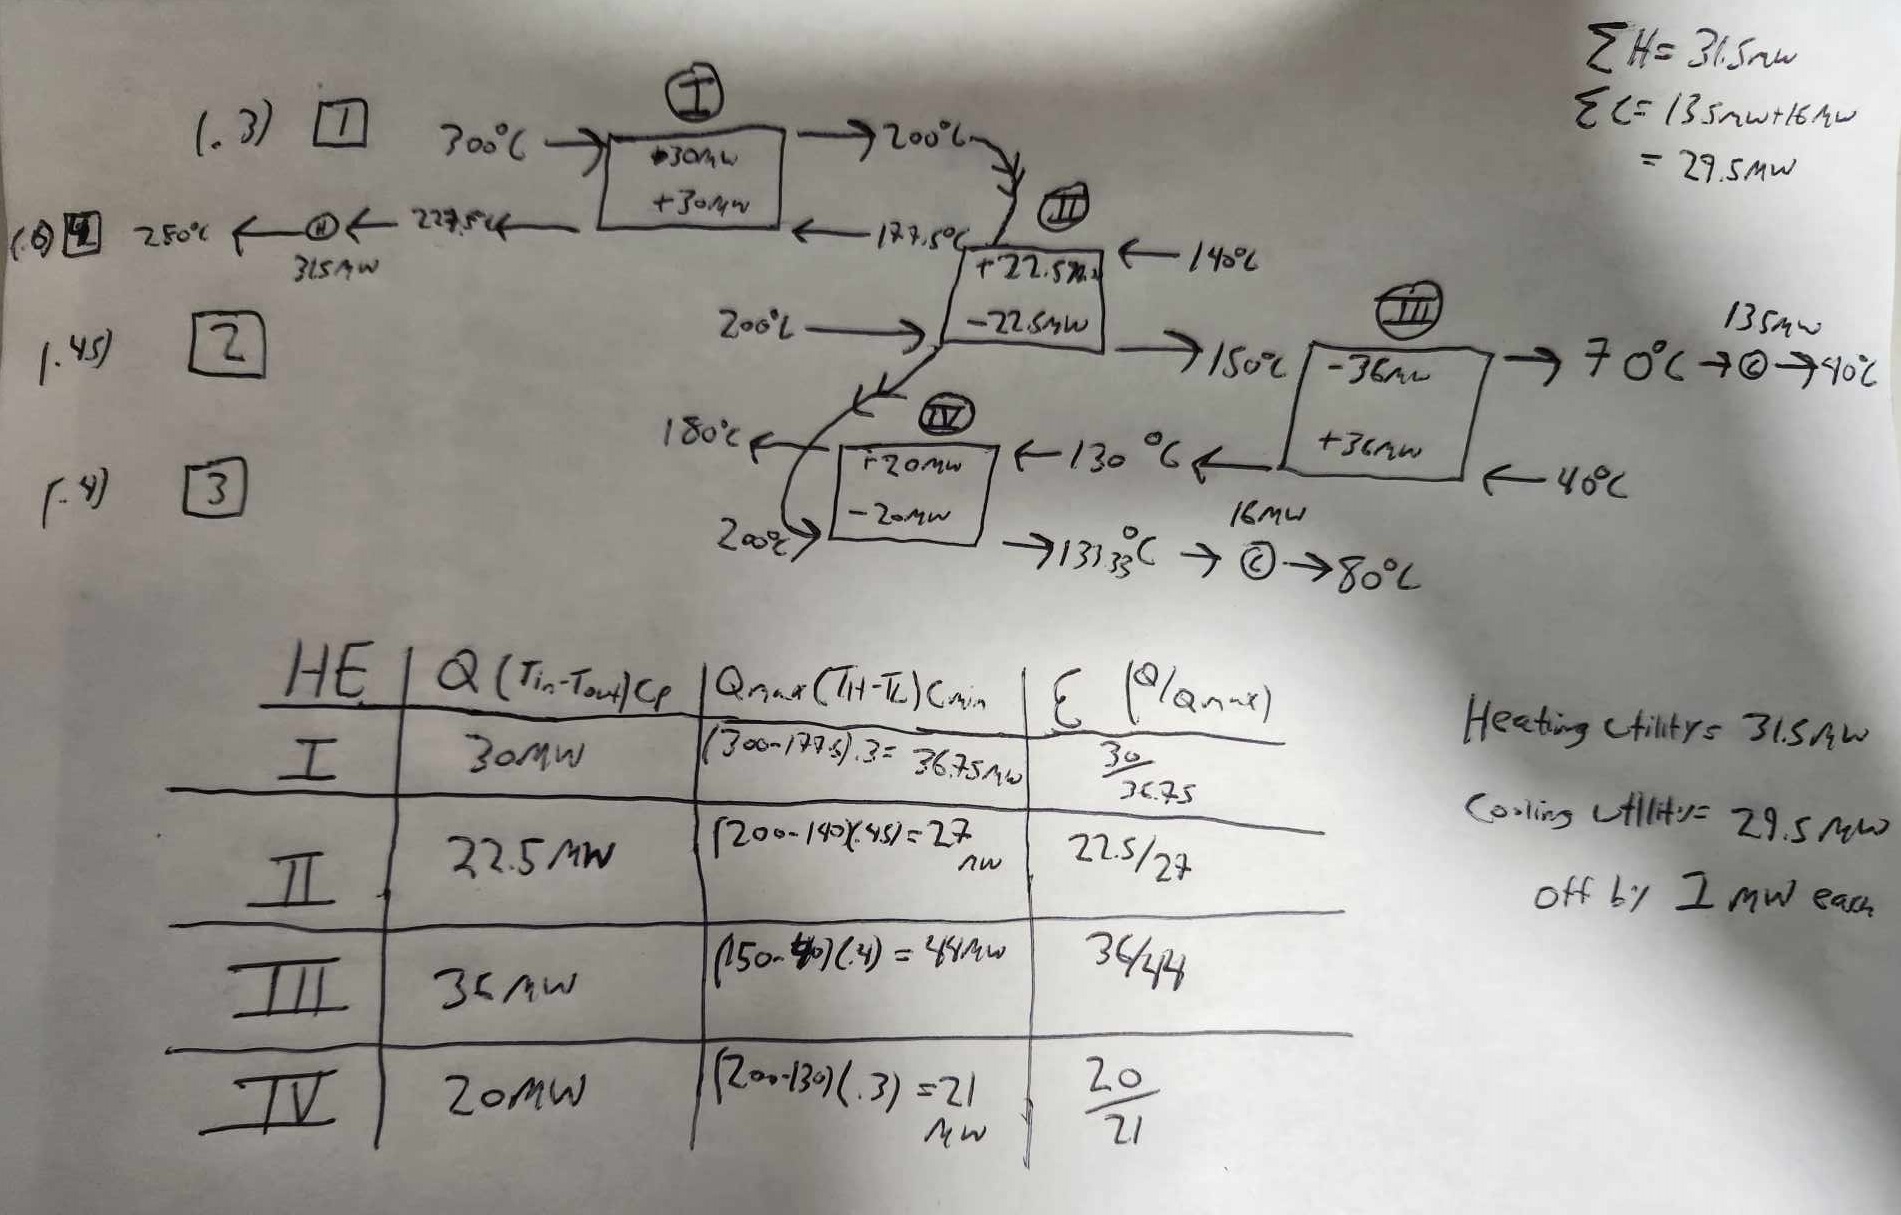 ΣH= 31.5MW
ΣC= 13.5MW+16MW
= 29.5MW
(.3) 1 300°C → I +30MW → 200°C
+30MW
(.6) 4 250°C ← H ← 227.5°C ← ← 177.5°C
31.5MW
II
+22.5MW ← 140°C
(.45) 2 200°C → -22.5MW → 150°C
III
-36MW → 70°C → C → 40°C
13.5MW
+36MW
← 40°C
IV
180°C ← +20MW ← 130°C ←
(.4) 3
200°C → -20MW → 133.33°C → C → 80°C
16MW
HE | Q (Tin-Tout)Cp | Qmax (TH-TL)Cmin | Ɛ (Q/Qmax)
I | 30MW | (300-177.5).3= 36.75MW | 30/36.75
II | 22.5MW | (200-140)(.45)=27 MW | 22.5/27
III | 36MW | (150-40)(.4) = 44MW | 36/44
IV | 20MW | (200-130)(.3) =21 MW | 20/21
Heating utility= 31.5MW
Cooling utility= 29.5MW
off by 1 MW each